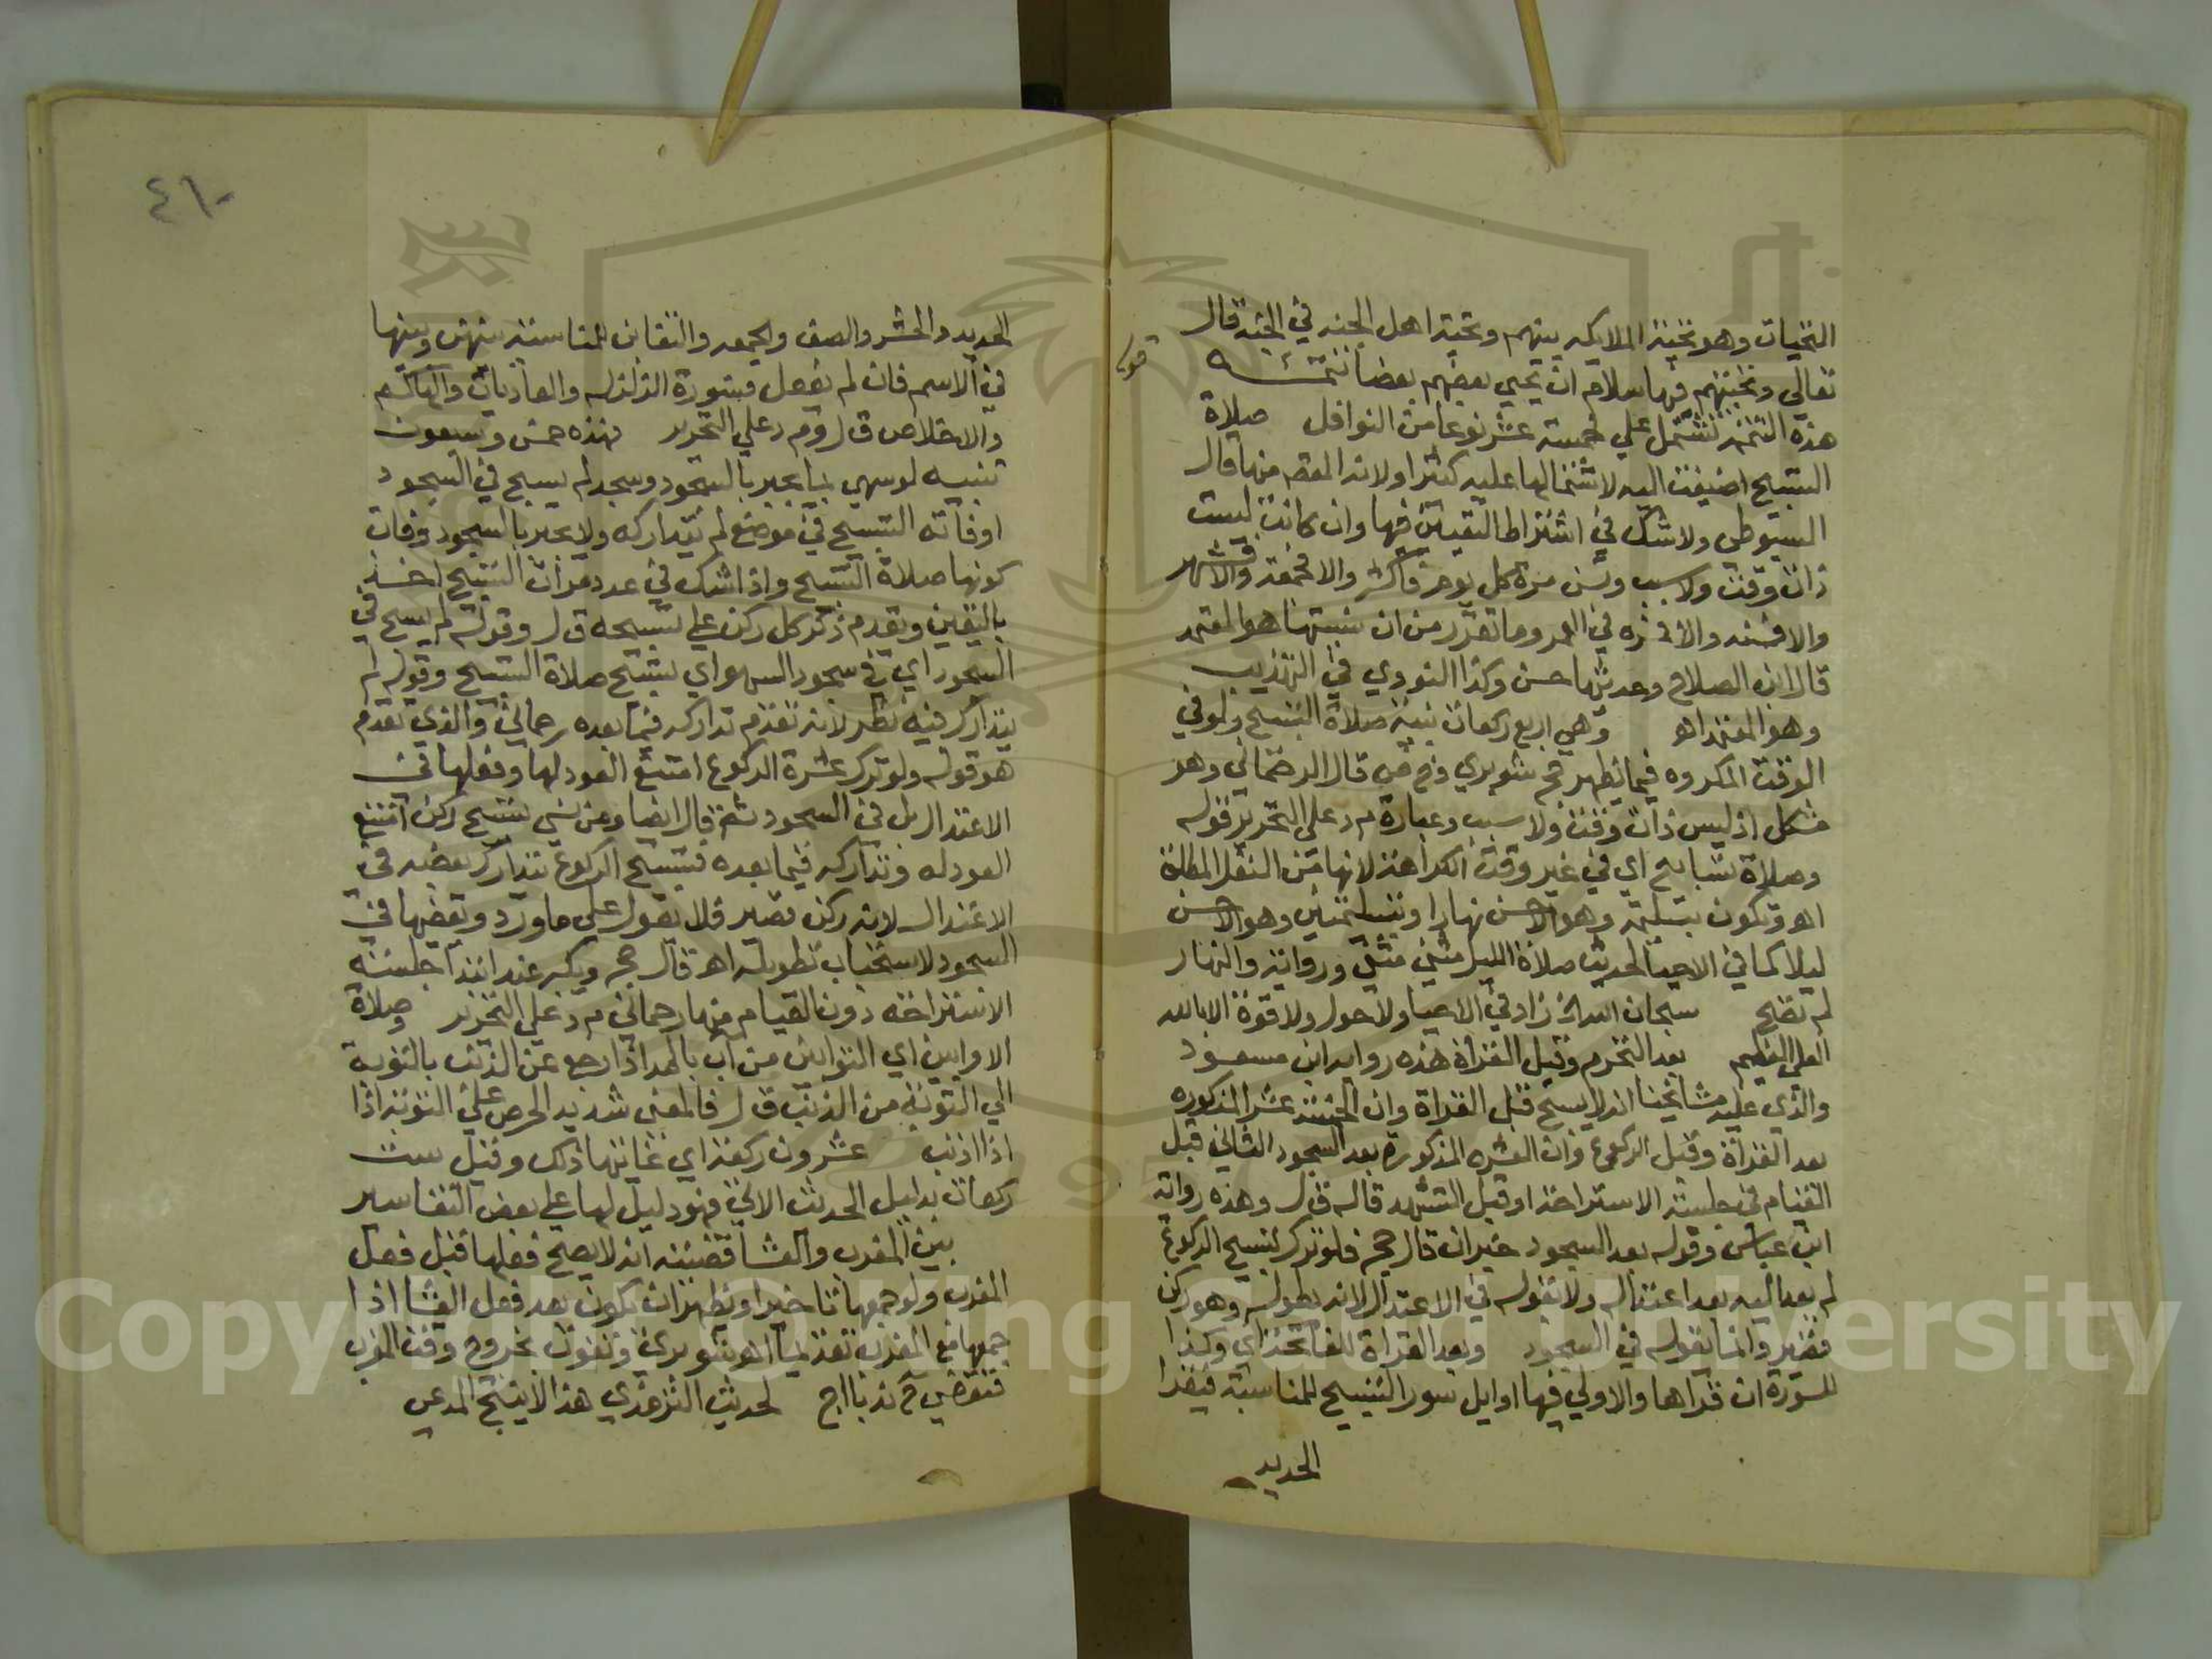 التحيات وهو تحية الملايكه بينهم وتحية اهل الجنه في الجنه قال
تعالي وتحيتهم فيها سلام ان يحيي بعضهم بعضا تتمه
قوله
هذه التتمه تشتمل علي خمسة عشر نوعا من النوافل صلاة
التسبيح اضيفت اليه لاشتمالها عليه كثيرا ولانه المعظم منها قال
السيوطي ولا شك في اشتراط التعيين فيها وان كانت ليست
ذات وقت ولا سبب وتسن مرة كل يوم فاكثر والا فجمعة والا فشهر
والا فسنه والا فمره في العمر وما تقرر من ان سنيتها هو المعتمد
قال ابن الصلاح وحديثها حسن وكذا النووي في التهذيب
وهو المعتمد اهـ وهي اربع ركعات بنية صلاة التسبيح ولو في
الوقت المكروه فيما يظهر حج شوبري وخ ض قال الرحماني وهو
مشكل اذ ليس ذات وقت ولا سبب وعبارة م د علي التحرير قوله
وصلاة تسابيح اي في غير وقت الكراهة لانها من النفل المطلق
اهـ وتكون بتسليمة وهو الاحسن نهارا وبتسليمتين وهو الاحسن
ليلا كما في الاحيا لحديث صلاة الليل مثني مثني ورواية والنهار
لم تصح سبحان الله الخ زاد في الاحيا ولا حول ولا قوة الا بالله
العلي العظيم بعد التحرم وقبل القراة هذه رواية ابن مسعود
والذي عليه مشايخنا انه لا يسبح قبل القراة وان الخمسة عشر المذكوره
بعد القراة وقبل الركوع وان العشره المذكورة بعد السجود الثاني قبل
القيام في جلسة الاستراحة او قبل التشهد قاله ق ل وهذه رواية
ابن عباس وقوله بعد السجود خبر ان قال حج فلو ترك تسبيح الركوع
لم يعد اليه بعد اعتداله ولا يقوله في الاعتدال لانه يطوله وهو ركن
قصير وانما يقوله في السجود وبعد القراة للفاتحة اي وكذا
للسورة ان قراها والاولي فيها اوايل سور التسبيح للمناسبة فيقرا
الحديد
٤١٠
الحديد والحشر والصف والجمعه والتغابن للمناسبة بينهن وبينها
في الاسم فان لم يفعل فسورة الزلزله والعاديات والهاكم
والاخلاص ق ل وم د علي التحرير فهذه خمس وسبعون
تنبيه لو سهي بما يجبر بالسجود وسجد لم يسبح في السجود
او فاته التسبيح في موضع لم يتداركه ولا يجبر بالسجود وفات
كونها صلاة التسبيح واذا شك في عدد مرات التسبيح اخذ
باليقين وتقدم ذكر كل ركن علي تسبيحه ق ل وقوله لم يسبح في
السجود اي في سجود السهو اي بتسبيح صلاة التسبيح وقوله لم
يتدارك فيه نظر لانه تقدم تداركه فيما بعده رحماني والذي تقدم
هو قوله ولو ترك عشرة الركوع امتنع العود لها وفعلها في
الاعتدال بل في السجود ثم قال ايضا ومن نسي تسبيح ركن امتنع
العود له وتداركه فيما بعده فتسبيح الركوع يتدارك بعضه في
الاعتدال لانه ركن قصير فلا يقول علي ما ورد وبعضها في
السجود لاستحباب تطويله اهـ قال حج ويكبر عند ابتدا جلسة
الاستراحه دون القيام منها رحماني م د علي التحرير وصلاة
الاوابين اي التوابين من آب بالمد اذا رجع عن الذنب بالتوبة
الي التوبة من الذنب ق ل فالمعني شديد الحرص علي التوبة اذا
اذا اذنب عشرون ركعة اي غايتها ذلك وقيل ست
ركعات بدليل الحديث الاتي فهو دليل لها علي بعض التفاسير
بين المغرب والعشا قضيته انه لا يصح فعلها قبل فعل
المغرب ولو جمعها تاخيرا ويظهر ان تكون بعد فعل العشا اذا
جمعها مع المغرب تقديما اهـ شوبري وتفوت بخروج وقت المغرب
فتقضي ح ندبا اج لحديث الترمذي هذا لا ينتج المدعي